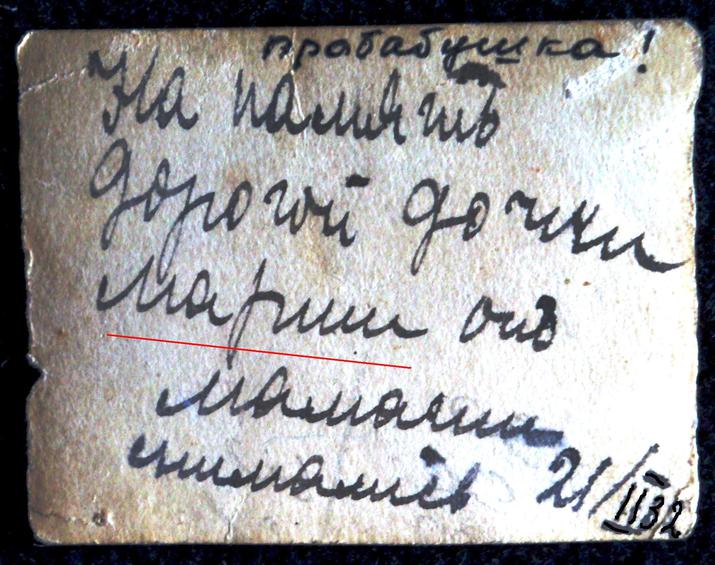 прабабушка!
На памʼять
дорогой дочки
марши от
мамочки
21/II 32